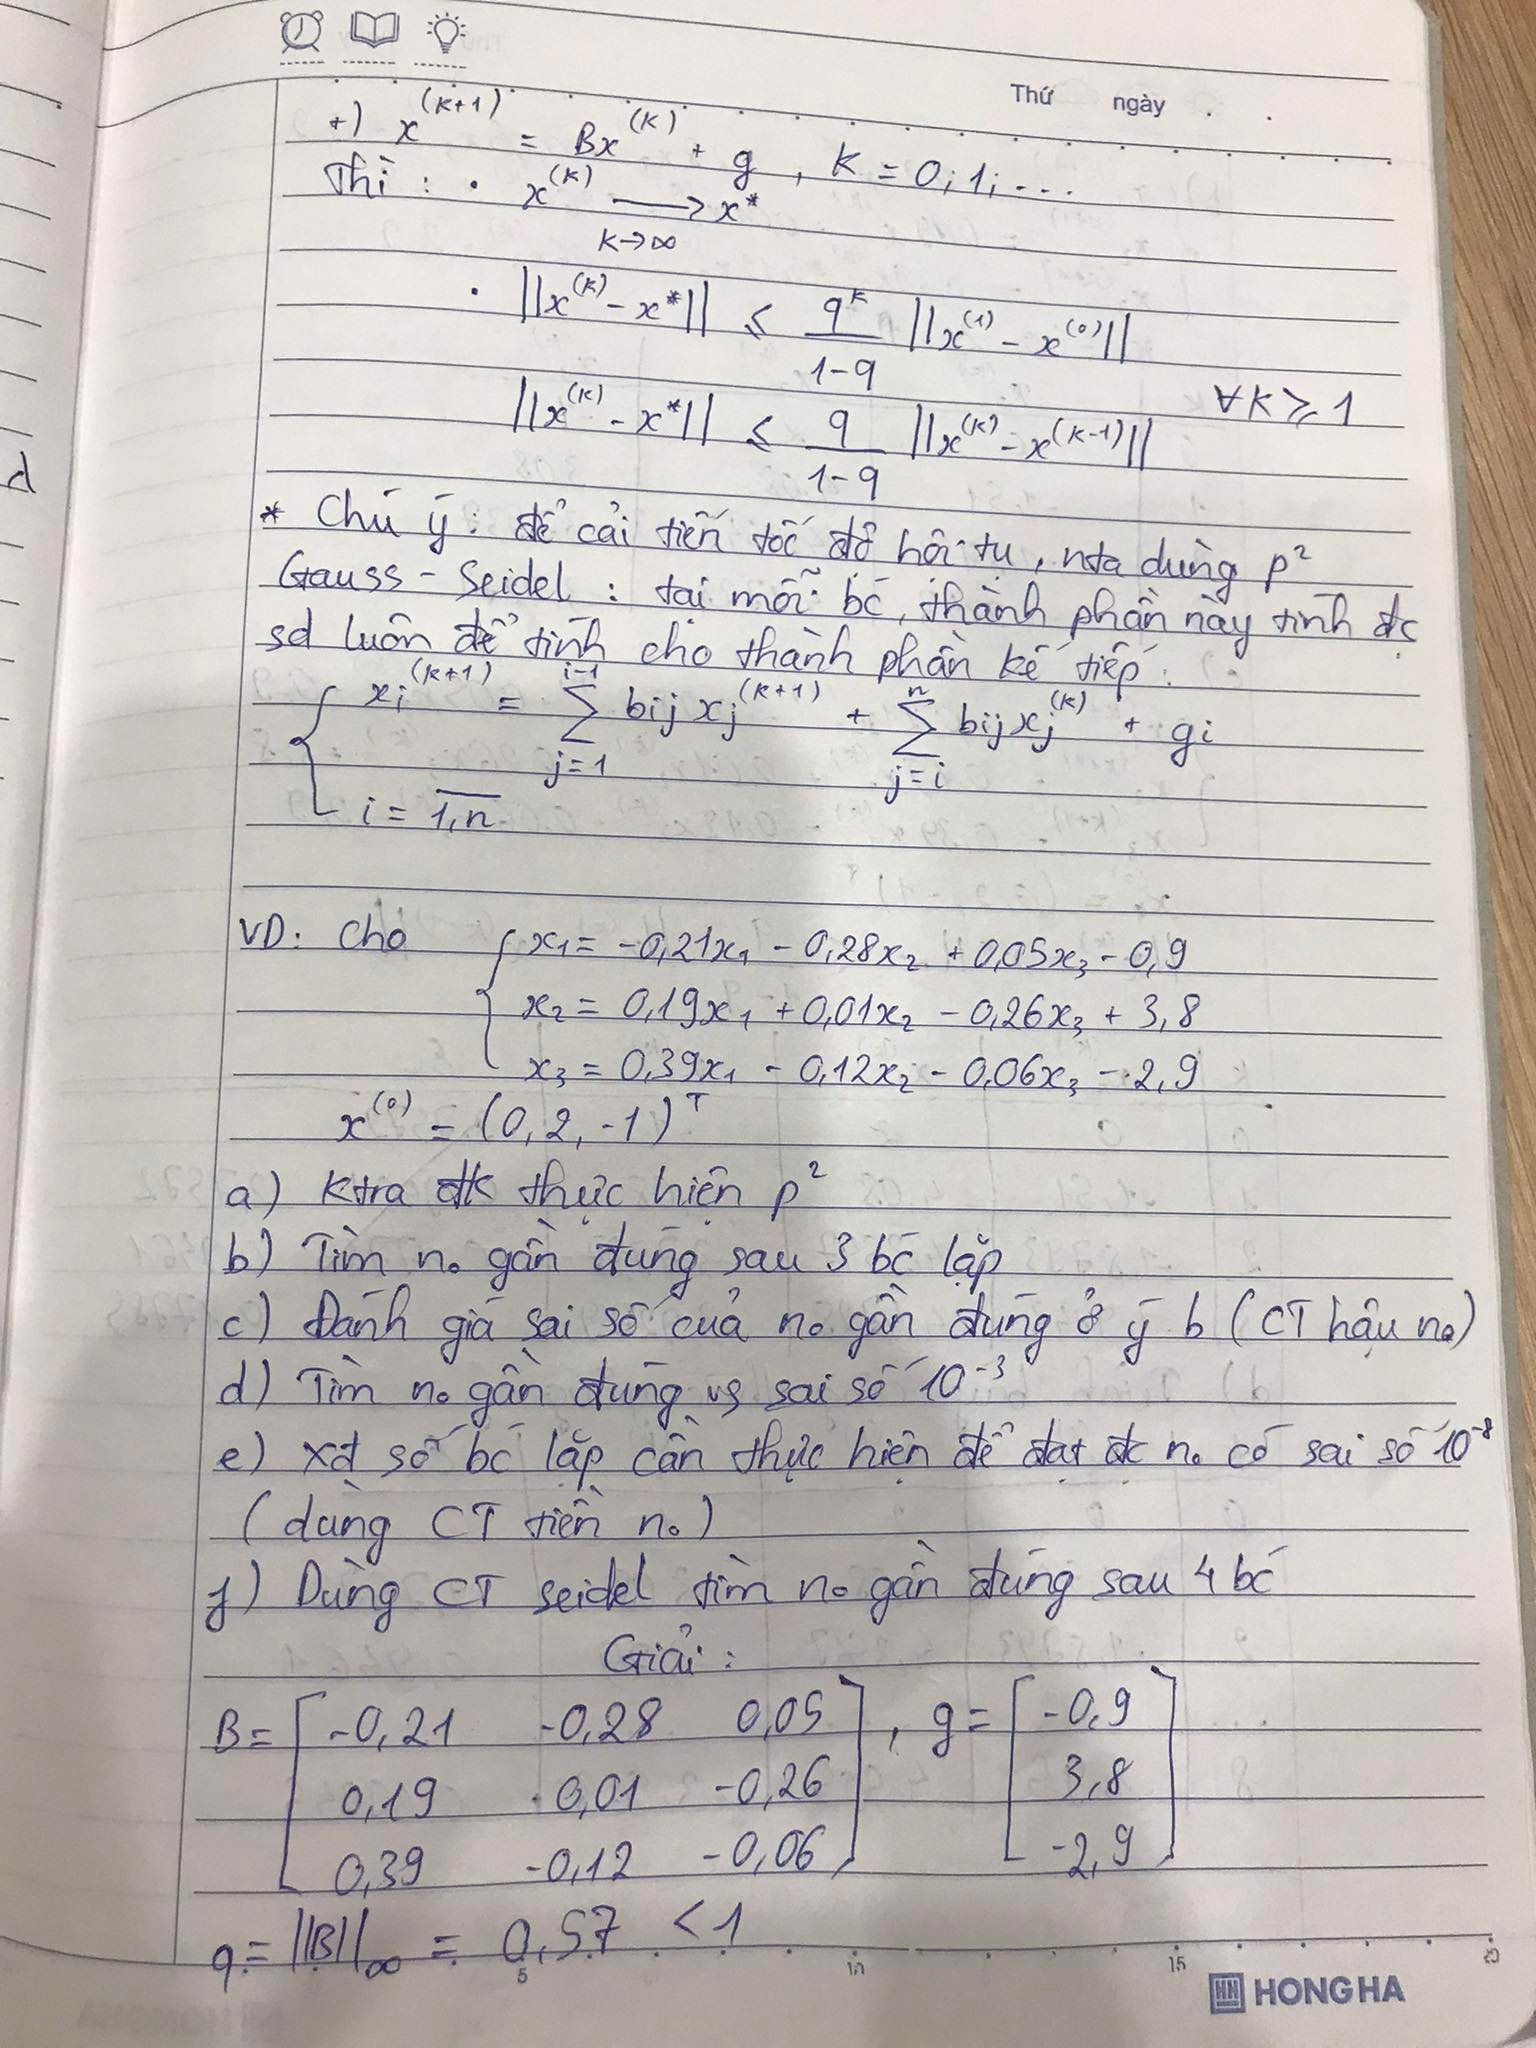 Thứ ngày
+) x^(k+1) = Bx^(k) + g, k = 0;1;...
Thì: • x^(k) → x*
k→∞
• ||x^(k) - x*|| ≤ q^k/(1-q) ||x^(1) - x^(0)||
∀k ≥ 1
||x^(k) - x*|| ≤ q/(1-q) ||x^(k) - x^(k-1)||
* Chú ý: để cải tiến tốc độ hội tụ, nta dùng p²
Gauss-Seidel: tại mỗi bc, thành phần này tính đc
sd luôn để tính cho thành phần kế tiếp:
{ xi^(k+1) = Σ_{j=1}^{i-1} bij xj^(k+1) + Σ_{j=i}^{n} bij xj^(k) + gi
i = 1,n
VD: Cho { x1 = -0,21x1 - 0,28x2 + 0,05x3 - 0,9
x2 = 0,19x1 + 0,01x2 - 0,26x3 + 3,8
x3 = 0,39x1 - 0,12x2 - 0,06x3 - 2,9
x^(0) = (0, 2, -1)^T
a) Ktra đk thực hiện p²
b) Tìm no gần đúng sau 3 bc lặp
c) Đánh giá sai số của no gần đúng ở ý b (CT hậu no)
d) Tìm no gần đúng vs sai số 10^-3
e) Xđ số bc lặp cần thực hiện để đạt đc no có sai số 10^-8
(dùng CT tiền no)
f) Dùng CT seidel tìm no gần đúng sau 4 bc
Giải:
B = [ -0,21 -0,28 0,05 ], g = [ -0,9 ]
0,19 0,01 -0,26 3,8
0,39 -0,12 -0,06 -2,9
q = ||B||∞ = 0,57 < 1
5 10 15 20
HH HONG HA